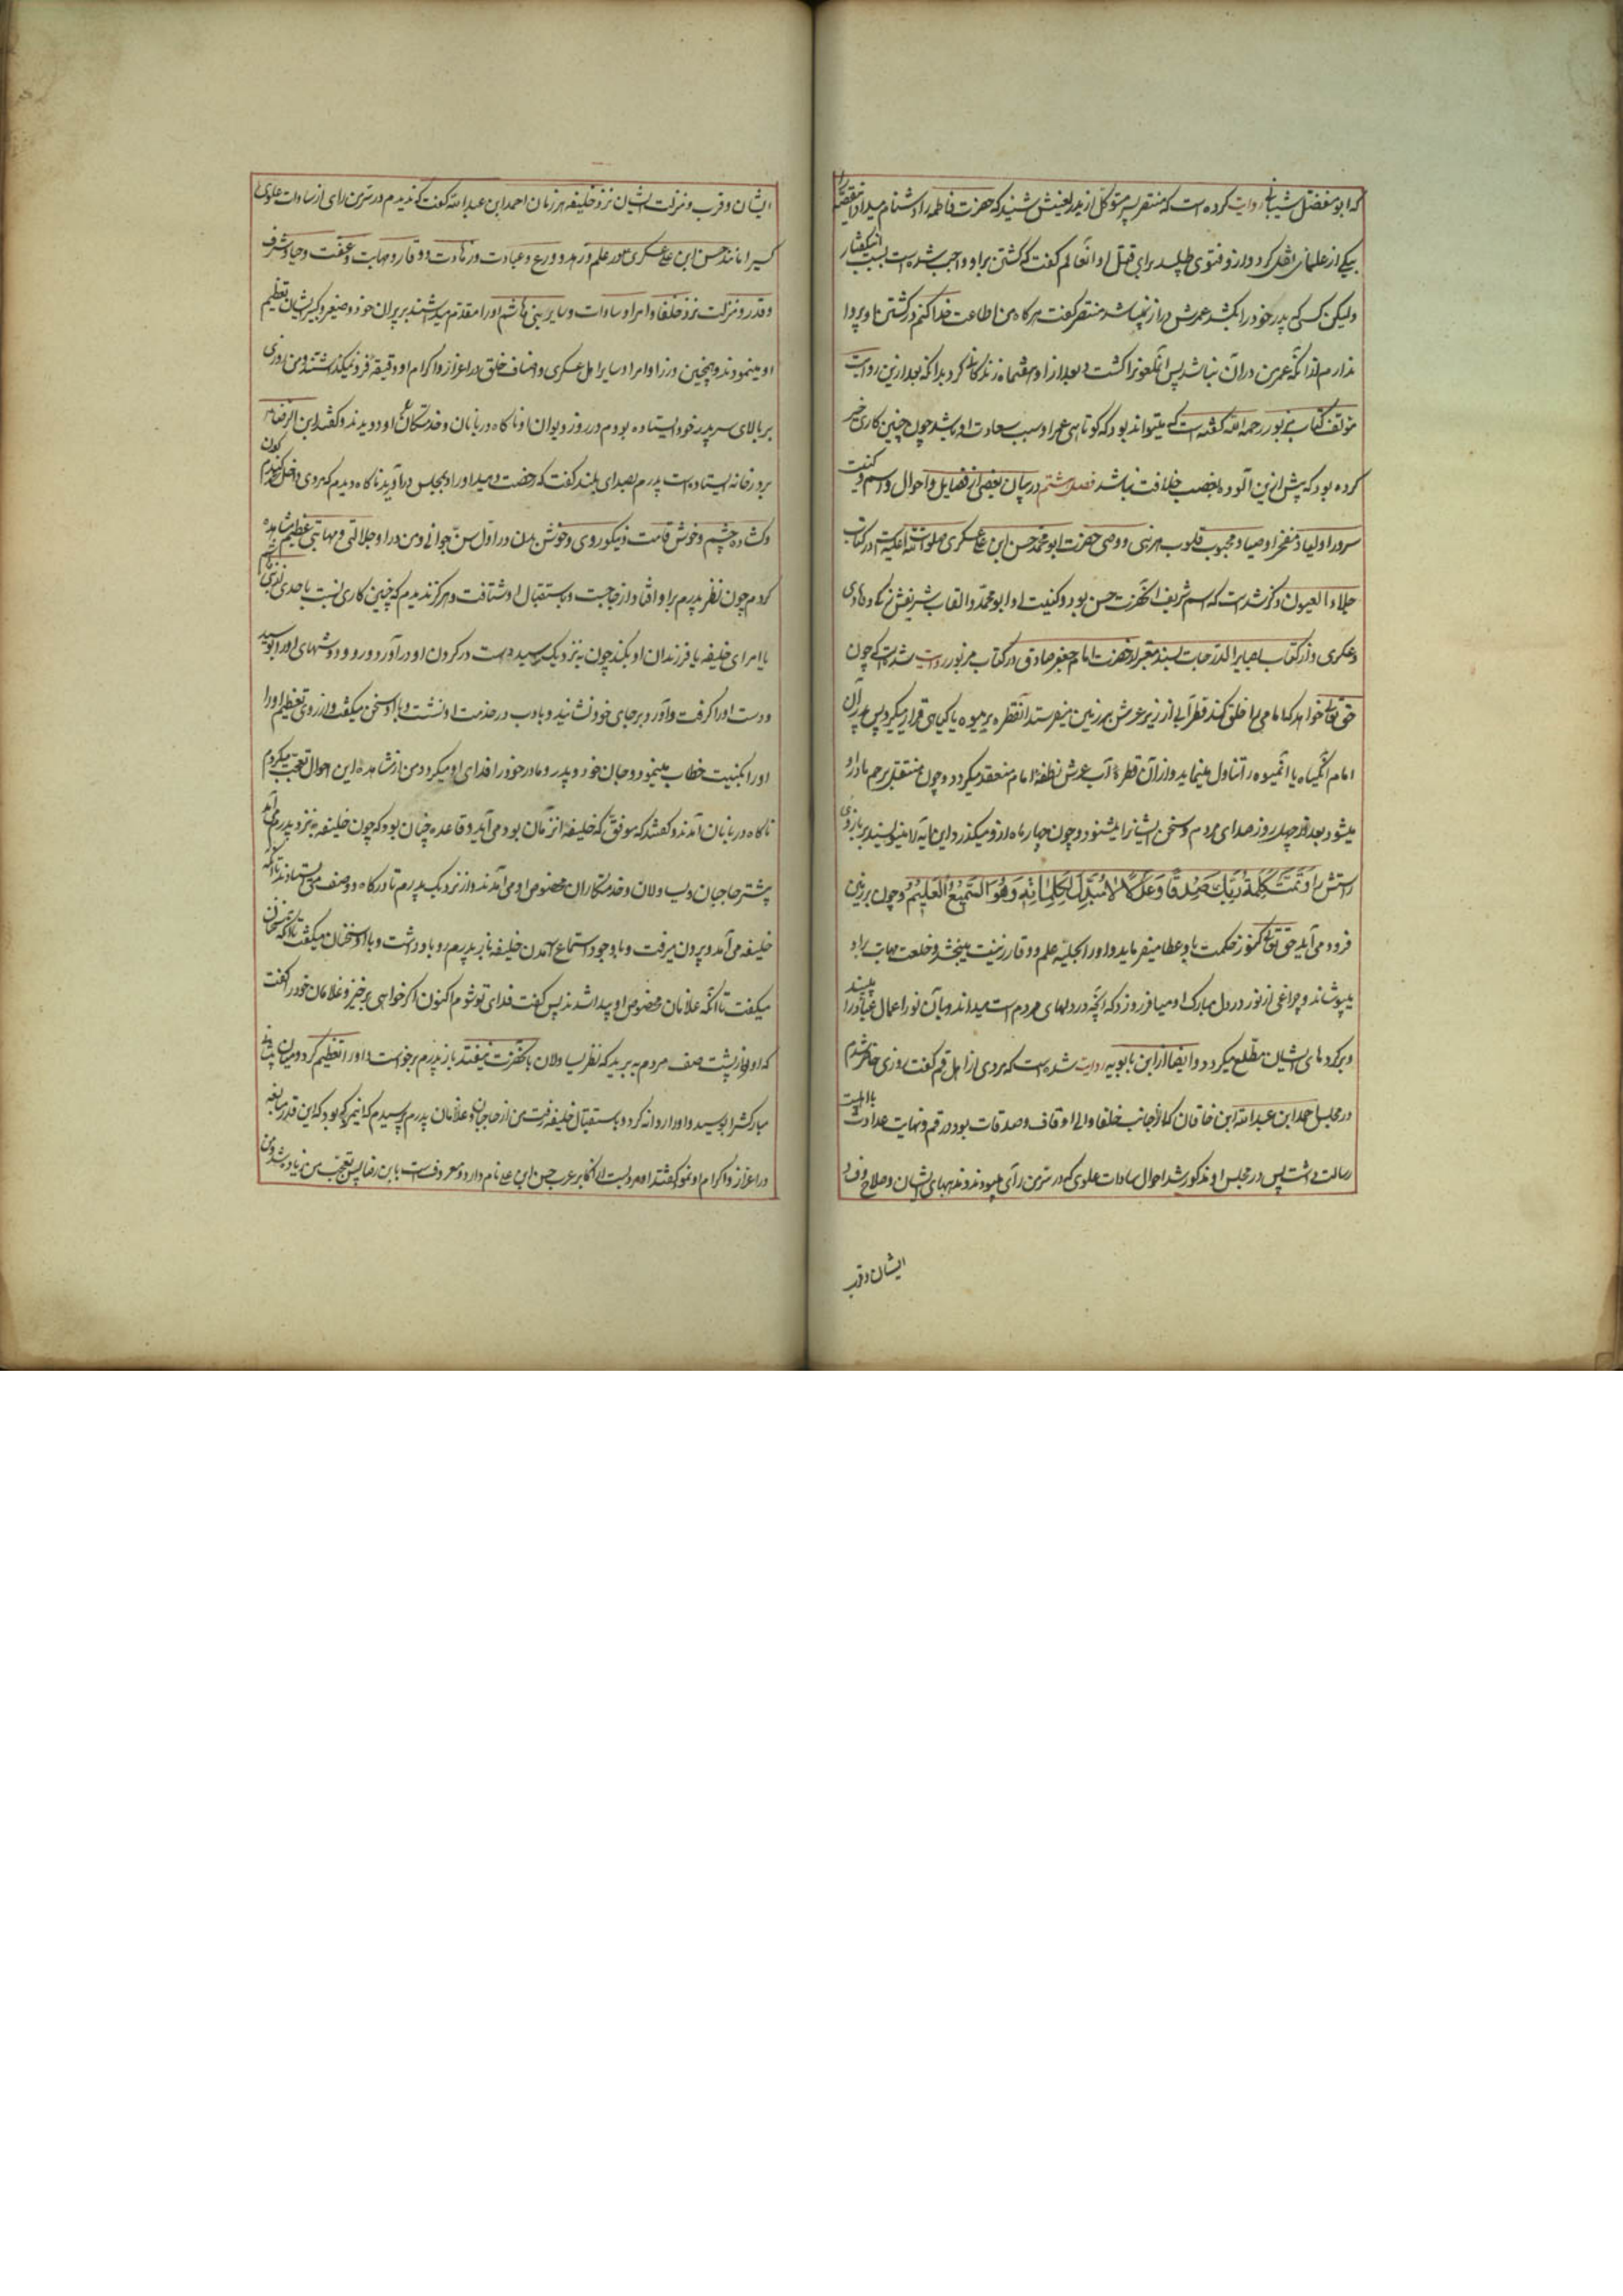 که ابو مفضل شیبانی روایت کرده است که منتصر پسر متوکل از پدر لعینش شنید که حضرت فاطمه را دشنام میداد اینقصه را
بیکی از علما نقل کرد و از او فتوی طلبید برای قتل او آنعالم گفت که کشتن بر او واجب شده است بسبب اینگفتار
ولیکن کسی که پدر خود را بکشد عمرش دراز نمیباشد منتصر گفت هرگاه من اطاعت خدا کنم در کشتن او پروا
ندارم از آنکه عمر من دراز نباشد پس آنملعونرا کشت و بعد از او هفتماه زندگانی کرد بدانکه بعد از این روایت
مؤلف کتاب مزبور رحمه الله گفته است که میتواند بود که کوتاهی عمر او سبب سعادت او باشد چون چنین کاری خیر
کرده بود که پیش ازین آلوده بغصب خلافت نباشد فصل هشتم در بیان بعضی از فضایل و احوال و اسم و کنیت
سرور اولیاء و مفخر اوصیاء و محبوب قلوب هر نبی و وصی حضرت ابو محمد حسن ابن علی عسکری صلوات الله علیه است در کتاب
جلاء العیون ذکر شده است که اسم شریف آنحضرت حسن بود و کنیت او ابو محمد و القاب شریفش زکی و هادی
و عسکری و از کتاب بصایر الدرجات بسند معتبر از حضرت امام جعفر صادق در کتاب مزبور روایت شده است که چون
حق تعالی خواهد که امامی را خلق کند قطره آبی از زیر عرش بر زمین میفرستد آنقطره بر میوه یا گیاهی قرار میگیرد پس پدر آن
امام آنگیاه یا آنمیوه را تناول مینماید و از آن قطره آب عرش نطفه امام منعقد میگردد و چون منتقل برحم مادر او
میشود بعد از چهل روز صدای مردم و سخن ایشانرا میشنود و چون چهار ماه از او میگذرد این آیه را مینویسند بر بازوی
راستش او تَمَّتْ كَلِمَةُ رَبِّكَ صِدْقًا وَعَدْلًا لَا مُبَدِّلَ لِكَلِمَاتِهِ وَهُوَ السَّمِيعُ الْعَلِيمُ و چون بر زمین
فرود می آید حق تعالی کنوز حکمت باو عطا میفرماید و او را بحلیه علم و وقار زینت میبخشد و خلعت مهابت بر او
میپوشاند و چراغی از نور در دل مبارک او میافروزد که آنچه در دلهای مردم است میداند و بآن نور اعمال عباد را میبیند
و بر کردهای ایشان مطلع میگردد و ایضا از ابن بابویه روایت شده است که مردی از اهل قم گفت روزی حاضر شدم
در مجلس احمد ابن عبدالله ابن خاقان که از جانب خلفا والی اوقاف و صدقات بود در قم و نهایت عداوت با اهلبیت
رسالت داشت پس در مجلس او مذکور شد احوال سادات علوی که در سرمن رأی میبودند و مذهبهای ایشان و صلاح و فساد
ایشان و قرب
ایشان و قرب و منزلت ایشان نزد خلیفه هر زمان احمد ابن عبدالله گفت که ندیدم در سرمن رای از سادات علوی
کسیرا مانند حسن ابن علی عسکری در علم و زهد و ورع و عبادت و زهادت و وقار و مهابت و عفت و حیا و شرف
و قدر و منزلت نزد خلفا و امرا و سادات و سایر بنی هاشم او را مقدم میداشتند بر پیران خود و صغیر و کبیر ایشان تعظیم
او مینمودند و همچنین وزرا و امرا و سایر اهل عسکری و اصناف خلق در اعزاز و اکرام او دقیقه فرو نمیگذاشتند و من روزی
بر بالای سر پدر خود ایستاده بودم در روز دیوان او ناگاه دربانان و خدمتکاران او دویدند و گفتند ابن الرضا
بر در خانه ایستاده است پدرم بصدای بلند گفت که رخصت دهید او را و بمجلس در آوریدش ناگاه دیدم که مردی داخل شد گندم گون
و گشاده چشم و خوش قامت و نیکو روی و خوش بدن در اول سن جوانی و من در او جلالتی و مهابتی عظیم مشاهده
کردم چون نظر پدرم بر او افتاد از جا جست و باستقبال او شتافت و هرگز ندیدم که چنین کاری نسبت باحدی از بنی هاشم
یا امرای خلیفه یا فرزندان او بکند چون به نزدیک رسید دست در گردن او در آورد و رو و دوشهای او را بوسید
و دست او را گرفت و آورد بر جای خود نشانید و با ادب در خدمت او نشست و با او سخن میگفت و از روی تعظیم او را
او را بکنیت خطاب مینمود و جان خود و پدر و مادر خود را فدای او میکرد و من از مشاهده این احوال تعجب میکردم
ناگاه دربانان آمدند و گفتند که موفق که خلیفه آنزمان بود می آید و قاعده چنان بود که چون خلیفه به نزد پدرم می آمد
پیشتر حاجبان و یساولان و خدمتکاران مخصوص او می آمدند و از نزدیک پدرم تا درگاه دو صف می ایستادند تا آنکه
خلیفه می آمد و بیرون میرفت و با وجود استماع آمدن خلیفه باز پدرم رو باو داشت و با او سخنان میگفت تا آنکه
میگفت تا آنکه غلامان مخصوص او پیدا شدند پس گفت فدای تو شوم اکنون اگر خواهی برخیز و غلامان خود را گفت
که او را از پشت صف مردم به برید که نظر یساولان بآنحضرت نیفتد باز پدرم برخواست و او را تعظیم کرد و میان
مبارکشرا بوسید و او را روانه کرد و باستقبال خلیفه رفت من از حاجبان و غلامان پدرم پرسیدم که اینمرد که بود که این قدر مبالغه
در اعزاز و اکرام او نمود گفتند او مردیست از اکابر عرب حسن ابن علی نام دارد و معروفست بابن رضا پس تعجب من زیاده شد